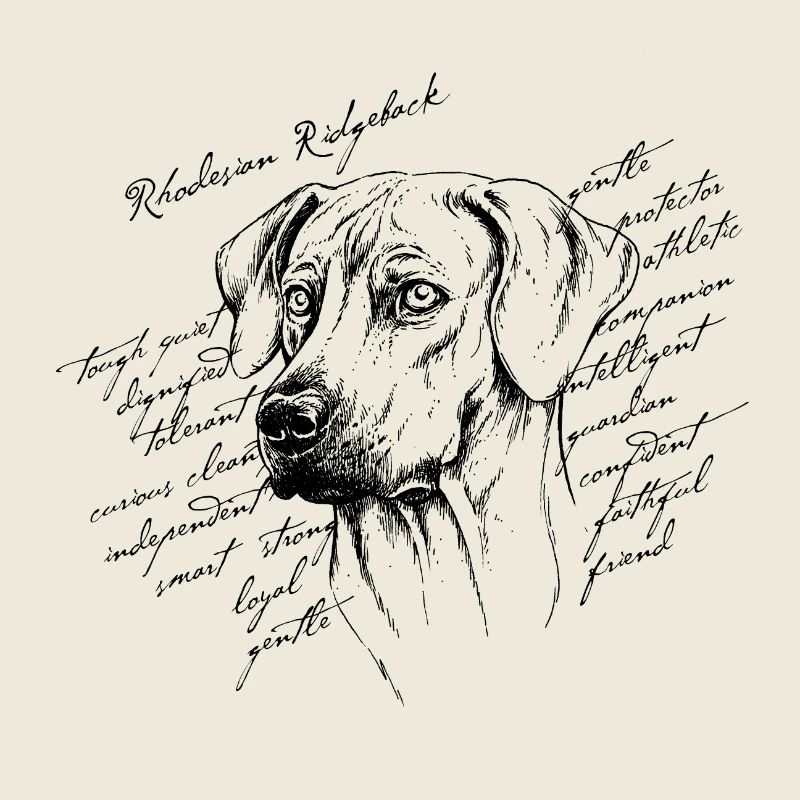 Rhodesian Ridgeback
tough quiet
dignified
tolerant
curious clean
independent
smart strong
loyal
gentle
gentle
protector
athletic
companion
intelligent
guardian
confident
faithful
friend